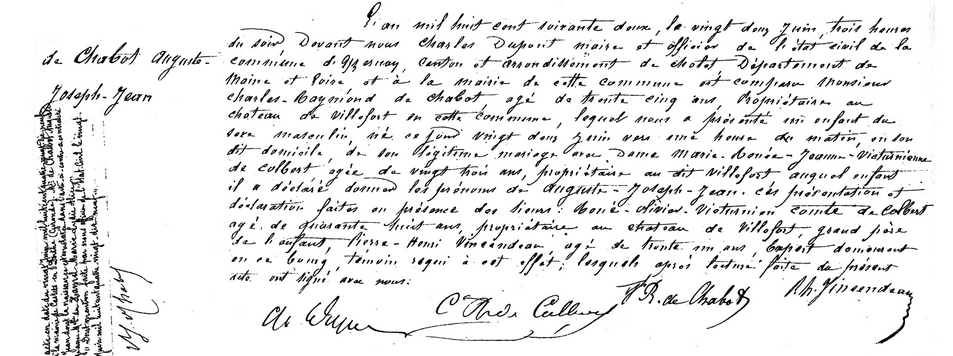 de Chabot Auguste-
Joseph-Jean
L'an mil huit cent soixante deux, le vingt deux Juin, trois heures
du soir, Devant nous Charles Dupont maire et officier de l'état civil de la
commune d'Yzernay, Canton et arrondissement de Cholet Département de
Maine et Loire et à la mairie de cette commune est comparu Monsieur
Charles-Raymond de Chabot, agé de trente cinq ans, Propriétaire au
chateau de Villefort en cette commune, lequel nous a présenté un enfant du
sexe masculin, né ce jour vingt deux Juin vers une heure du matin, en son
dit domicile, de son légitime mariage avec Dame Marie-Renée-Jeanne-Victurnienne
de Colbert, agée de vingt trois ans, propriétaire au dit Villefort auquel enfant
il a déclaré donner les prénoms de Auguste-Joseph-Jean. Ces présentation et
déclaration faites en présence des sieurs: René-Olivier-Victurnien comte de Colbert
agé de quarante huit ans, propriétaire au chateau de Villefort, grand père
de l'enfant, Pierre-Henri Vincendeau agé de trente un ans, Expert demeurant
en ce bourg, temoin requi à cet effet; lesquels après lecture faite du présent
acte ont signé avec nous.
Ch Dupont
Cte R de Colbert
R. de Chabot
P.h. Vincendeau